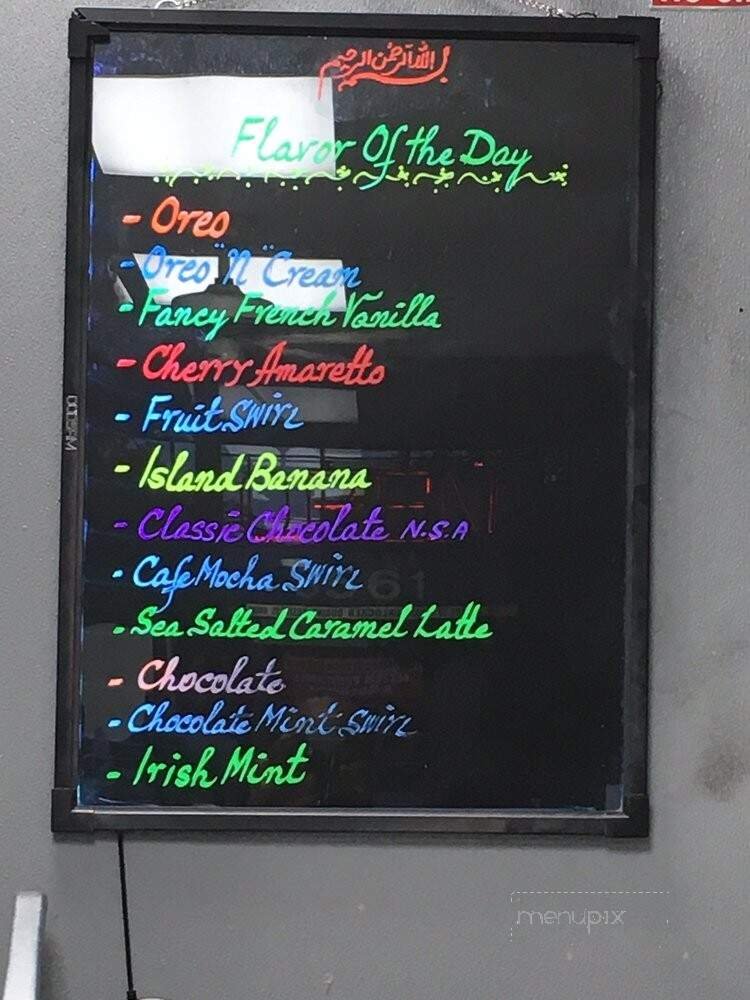 بسم الله الرحمن الرحيم
Flavor Of the Day
- Oreo
- Oreo "N" Cream
- Fancy French Vanilla
- Cherry Amaretto
- Fruit Swirl
- Island Banana
- Classic Chocolate N.S.A
- Cafe Mocha Swirl
- Sea Salted Caramel Latte
- Chocolate
- Chocolate Mint Swirl
- Irish Mint
menupix